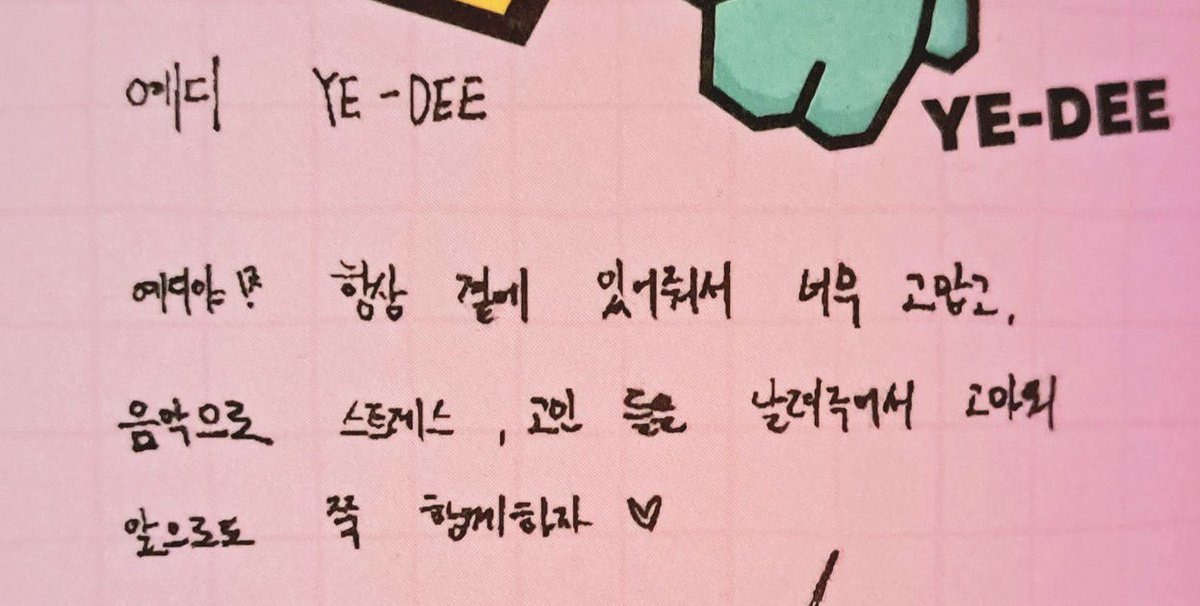 예디 YE-DEE
YE-DEE
예디야!? 항상 곁에 있어줘서 너무 고맙고,
음악으로 스트레스, 고민 들을 날려주어서 고마워
앞으로도 쭉 함께하자 ♡